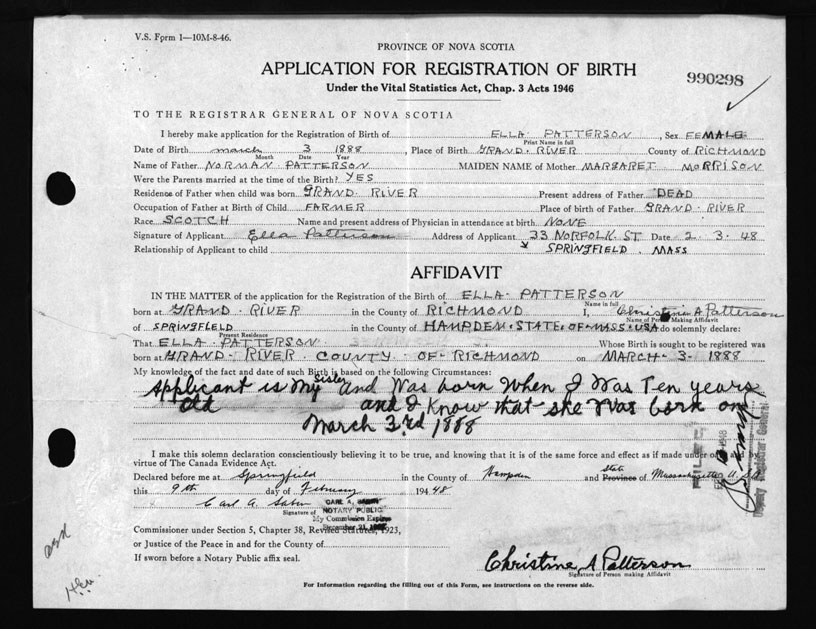 V.S. Form 1—10M-8-46.
PROVINCE OF NOVA SCOTIA
APPLICATION FOR REGISTRATION OF BIRTH
990298
Under the Vital Statistics Act, Chap. 3 Acts 1946
TO THE REGISTRAR GENERAL OF NOVA SCOTIA
I hereby make application for the Registration of Birth of ELLA PATTERSON, Sex FEMALE
Print Name in full
Date of Birth march 3 1888, Place of Birth GRAND RIVER County of RICHMOND
Month Date Year
Name of Father NORMAN PATTERSON MAIDEN NAME of Mother MARGARET MORRISON
Were the Parents married at the time of the Birth? YES
Residence of Father when child was born GRAND RIVER Present address of Father DEAD
Occupation of Father at Birth of Child FARMER Place of birth of Father GRAND RIVER
Race SCOTCH Name and present address of Physician in attendance at birth NONE
Signature of Applicant Ella Patterson Address of Applicant 33 NORFOLK ST Date 2 3 48
Relationship of Applicant to child SPRINGFIELD MASS
AFFIDAVIT
IN THE MATTER of the application for the Registration of the Birth of ELLA PATTERSON
Name in full
born at GRAND RIVER in the County of RICHMOND I, Christine A Patterson
Name of Person Making Affidavit
of SPRINGFIELD in the County of HAMPDEN STATE OF MASS USA do solemnly declare:
Present Residence
That ELLA PATTERSON Whose Birth is sought to be registered was
born at GRAND RIVER COUNTY OF RICHMOND on MARCH 3 1888
My knowledge of the fact and date of such Birth is based on the following Circumstances:
Applicant is My Sister and Was born When I Was Ten years
Old and I Know that she Was born on
March 3rd 1888
FILED
Deputy Registrar General
I make this solemn declaration conscientiously believing it to be true, and knowing that it is of the same force and effect as if made under oath and by
virtue of The Canada Evidence Act.
Declared before me at Springfield in the County of Hampden and State Province of Massachusetts U.S.
this 9th day of February 1948
Carl A.
CARL A.
Signature of NOTARY PUBLIC
My Commission Expires
December 21,
Commissioner under Section 5, Chapter 38, Revised Statutes, 1923,
or Justice of the Peace in and for the County of
If sworn before a Notary Public affix seal.
Christine A Patterson
Signature of Person making Affidavit
For Information regarding the filling out of this Form, see instructions on the reverse side.